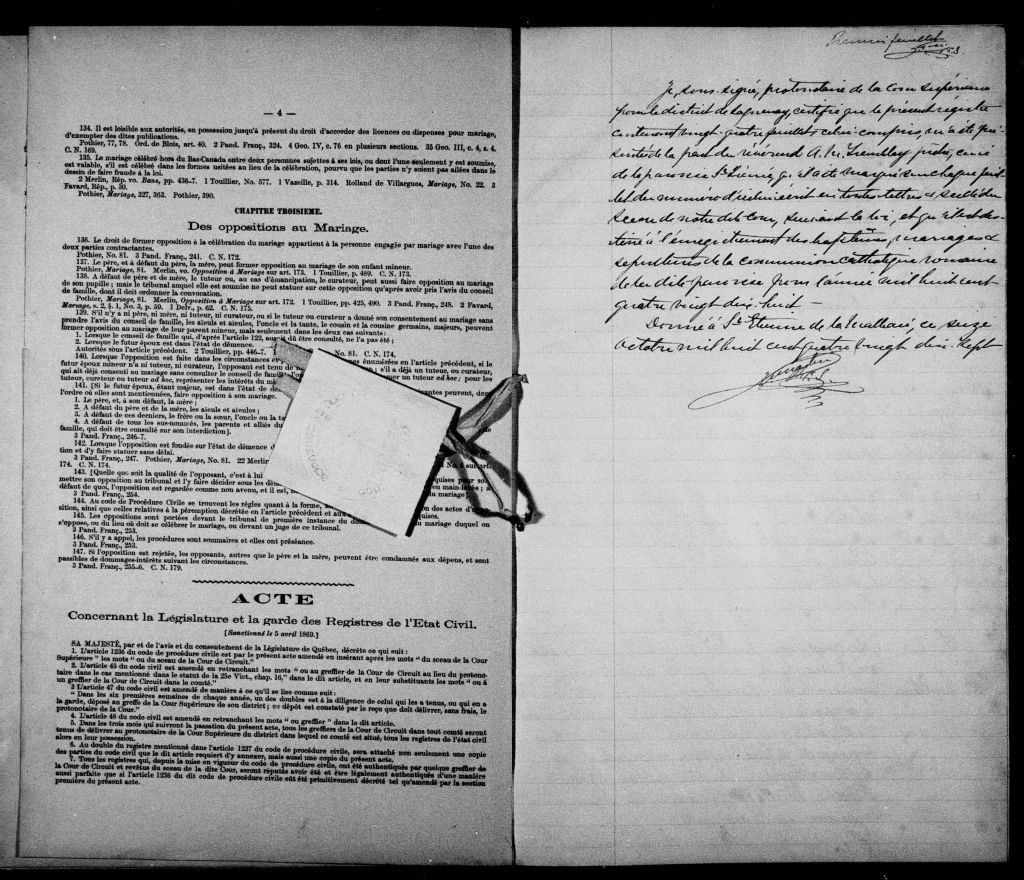 — 4 —
134. Il est loisible aux autorités, en possession jusqu'à présent du droit d'accorder des licences ou dispenses pour mariage,
d'exempter des dites publications.
Pothier, 77, 78. Ord. de Blois, art. 40. 2 Pand. Franç., 324. 4 Geo. IV, c. 76 en plusieurs sections. 35 Geo. III, c. 4, s. 4.
C. N. 169.
135. Le mariage célébré hors du Bas-Canada entre deux personnes sujettes à ses lois, ou dont l'une seulement y est soumise,
est valable, s'il est célébré dans les formes usitées au lieu de la célébration, pourvu que les parties n'y soient pas allées dans le
dessin de faire fraude à la loi.
2 Merlin, Rép. vo. Bans, pp. 436-7. 1 Touillier, No. 577. 1 Vazeille, p. 314. Rolland de Villargues, Mariage, No. 22. 3
Favard, Rép., p. 30.
Pothier, Mariage, 327, 363. Pothier, 390.
CHAPITRE TROISIEME.
Des oppositions au Mariage.
136. Le droit de former opposition à la célébration du mariage appartient à la personne engagée par mariage avec l'une des
deux parties contractantes.
Pothier, No. 81. 3 Pand. Franç., 241. C. N. 172.
137. Le père, et à défaut du père, la mère, peut former opposition au mariage de son enfant mineur.
Pothier, Mariage, 81. Merlin, vo. Opposition à Mariage sur art. 173. 1 Touillier, p. 489. C. N. 173.
138. A défaut de père et de mère, le tuteur ou, au cas d'émancipation, le curateur, peut aussi faire opposition au mariage
de son pupille; mais le tribunal auquel elle est soumise ne peut statuer sur cette opposition qu'après avoir pris l'avis du conseil
de famille, dont il doit ordonner la convocation.
Pothier, Mariage, 81. Merlin, Opposition à Mariage sur art. 172. 1 Touillier, pp. 425, 490. 3 Pand. Franç., 248. 2 Favard,
Mariage, s. 2, § 1, No. 3, p. 59. 1 Delv., p. 62. C. N. 175.
139. S'il n'y a ni père, ni mère, ni tuteur, ni curateur, ou si le tuteur ou curateur a donné son consentement au mariage sans
prendre l'avis du conseil de famille, les aieuls et aieules, l'oncle et la tante, le cousin et la cousine germains, majeurs, peuvent
former opposition au mariage de leur parent mineur, mais seulement dans les deux cas suivants:
1. Lorsque le conseil de famille qui, d'après l'article 122, aurait dû être consulté, ne l'a pas été;
2. Lorsque le futur époux est dans l'état de démence.
Autorités sous l'article précédent. 2 Touillier, pp. 446-7. No. 81. C. N. 174.
140. Lorsque l'opposition est faite dans les circonstances énumérées en l'article précédent, si le
futur époux mineur n'a ni tuteur, ni curateur, l'opposant est tenu de s'il a déjà un tuteur, curateur,
qui ait déjà consenti au mariage sans consulter le conseil de
tuteur, curateur ou tuteur ad hoc, représenter les intérêts du un tuteur ad hoc; pour les
141. [Si le futur époux, étant majeur, est dans l'état de peuvent, dans
l'ordre où elles sont mentionnées, faire opposition à son mariage.
1. Le père, et, à son défaut, la mère;
2. A défaut du père et de la mère, les aieuls et aieules;
3. A défaut de ces derniers, le frère ou la sœur, l'oncle ou la
4. A défaut de tous les sus-nommés, les parents et alliés du
famille, qui doit être consulté sur son interdiction].
3 Pand. Franç., 246-7.
142. Lorsque l'opposition est fondée sur l'état de démence
tion et d'y faire statuer sans délai.
3 Pand. Franç., 247. Pothier, Mariage, No. 81. 22 Merlin No. 4 sur art.
174. C. N. 174.
143. [Quelle que soit la qualité de l'opposant, c'est à lui
mettre son opposition au tribunal et l'y faire décider sous les en main-levée; à
défaut de quoi, l'opposition est regardée comme non avenue, et il est, du mariage].
3 Pand. Franç., 254.
144. Au code de Procédure Civile se trouvent les règles quant à la forme, des actes
sition, ainsi que celles relatives à la péremption décrétée en l'article précédent et aux
145. Les oppositions sont portées devant le tribunal de première instance du du mariage duquel on
s'oppose, ou du lieu où doit se célébrer le mariage, ou devant un juge de ce tribunal.
3 Pand. Franç., 253.
146. S'il y a appel, les procédures sont sommaires et elles ont préséance.
3 Pand. Franç., 253.
147. Si l'opposition est rejetée, les opposants, autres que le père et la mère, peuvent être condamnés aux dépens, et sont
passibles de dommages-intérêts suivant les circonstances.
3 Pand. Franç., 255-6. C. N. 179.
ACTE
Concernant la Législature et la garde des Registres de l'Etat Civil.
[Sanctionné le 5 avril 1869.]
SA MAJESTÉ, par et de l'avis et du consentement de la Législature de Québec, décrète ce qui suit:
1. L'article 1236 du code de procédure civile est par le présent acte amendé en insérant après les mots "du sceau de la Cour
Supérieure" les mots "ou du sceau de la Cour de Circuit."
2. L'article 45 du code civil est amendé en retranchant les mots "ou au greffier de la Cour de Circuit au lieu du protono-
taire dans le cas mentionné dans le statut de la 25e Vict., chap. 16," dans le dit article, et en leur substituant les mots "ou à
un greffier de la Cour de Circuit dans le comté."
3 L'article 47 du code civil est amendé de manière à ce qu'il se lise comme suit:
"Dans les six premières semaines de chaque année, un des doubles est à la diligence de celui qui les a tenus, ou qui en a
la garde, déposé au greffe de la Cour Supérieure de son district; ce dépôt est constaté par le reçu que doit délivrer, sans frais, le
protonotaire de la Cour."
4. L'article 48 du code civil est amendé en retranchant les mots "ou greffier" dans le dit article.
5. Dans les trois mois qui suivront la passation du présent acte, tous les greffiers de la Cour de Circuit dans tout comté seront
tenus de délivrer au protonotaire de la Cour Supérieure du district dans lequel ce comté est situé, tous les registres de l'état civil
alors en leur possession.
6. Au double du registre mentionné dans l'article 1237 du code de procédure civile, sera attaché non seulement une copie
des parties du code civil que le dit article requiert d'y annexer, mais aussi une copie du présent acte.
7. Tous les registres qui, depuis la mise en vigueur du code de procédure civile, ont été authentiqués par quelque greffier de
la Cour de Circuit et revêtus du sceau de la dite Cour, seront réputés avoir été et être légalement authentiqués d'une manière
aussi parfaite que si l'article 1236 du dit code de procédure civile eût été primitivement décrété tel qu'amendé par la section
première du présent acte.
Premier feuillet
Je, sous-signé, protonotaire de la Cour Supérieure
pour le district de Saguenay, certifie que le présent registre
contenant vingt-quatre feuillets celui compris, m'a été pré-
senté de la part du révérend A. M. Tremblay ptre, curé
de la paroisse St et a été marqué sur chaque feuil-
let du numéro d'icelui écrit en toutes lettres & scellé du
Sceau de notre dite Cour, suivant la loi, et qu'il est des-
tiné à l'enregistrement des baptêmes, mariages &
sépultures de la communion catholique romaine
de la dite paroisse pour l'année mil huit cent
quatre vingt dix-huit —
Donné à St. Etienne de la Malbaie, ce seize
octobre mil huit cent quatre vingt dix-sept